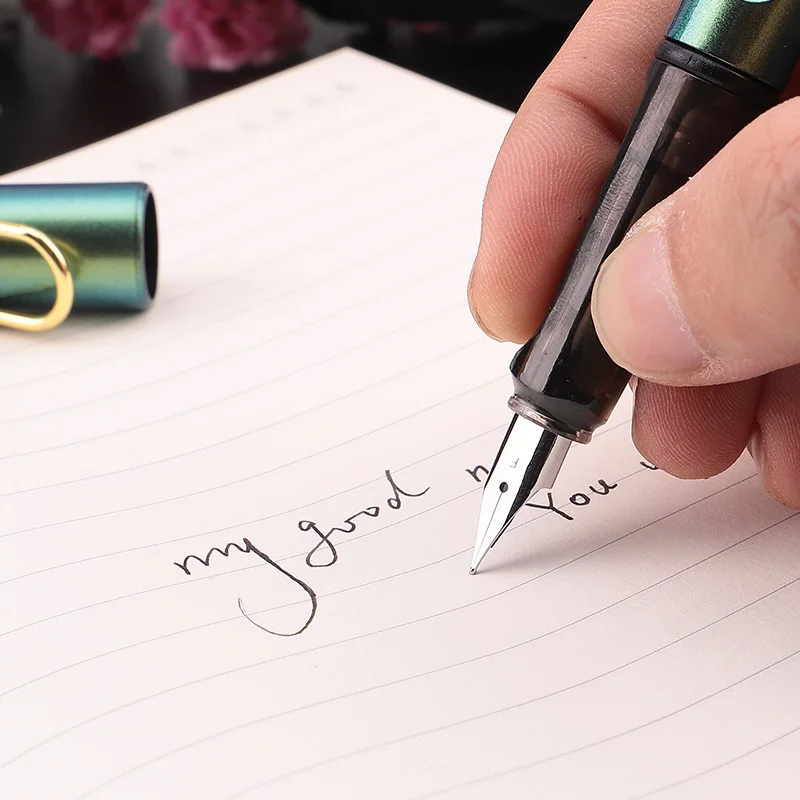 my good
You